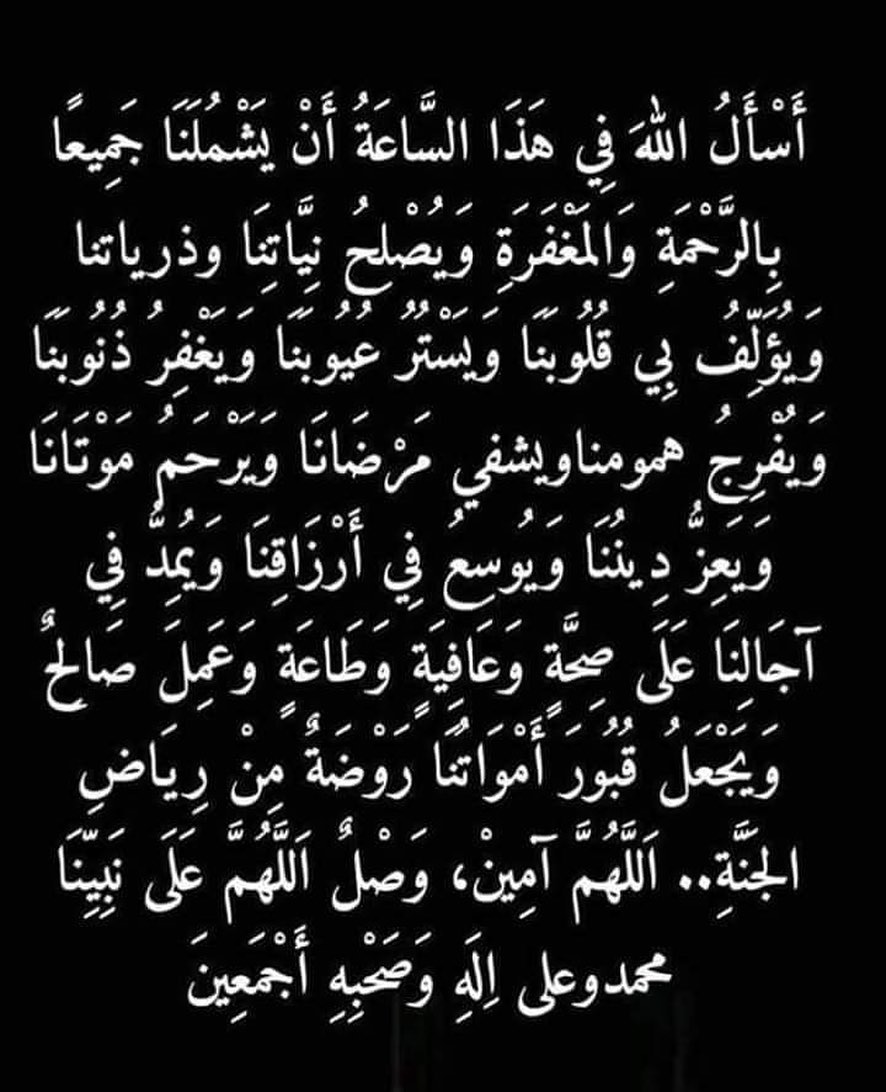 أَسْأَلُ اللهَ فِي هَذَا السَّاعَةُ أَنْ يَشْمُلَنَا جَمِيعًا
بِالرَّحْمَةِ وَالْمَغْفَرَةِ وَيُصْلِحُ نِيَّاتِنَا وذرياتنا
وَيُؤَلِّفُ بِي قُلُوبنَا وَيَسْتُرُ عُيوبنَا وَيَغْفِرُ ذُنُوبنَا
وَيُفْرِجُ همومناويشفي مَرْضَانَا وَيَرْحَمُ مَوْتَانَا
وَيَعِزُّ دِيننُنَا وَيُوسِعُ فِي أَرْزَاقِنَا وَيَمِدُّ فِي
آجَالِنَا عَلَى صِحَّةٍ وَعَافِيَةٍ وَطَاعَةٍ وَعَمِلَ صَالِحٌ
وَيَجْعَلُ قُبُورَ أَمْوَاتُنَا رَوْضَةٌ مِنْ رِيَاضِ
الْجَنَّةِ.. اَللَّهُمَّ آمِينْ، وَصْلٌ اَللَّهُمَّ عَلَى نَبِيِّنَا
محمدوعلى اِلَهِ وَصَحْبِهِ أَجْمَعِينَ